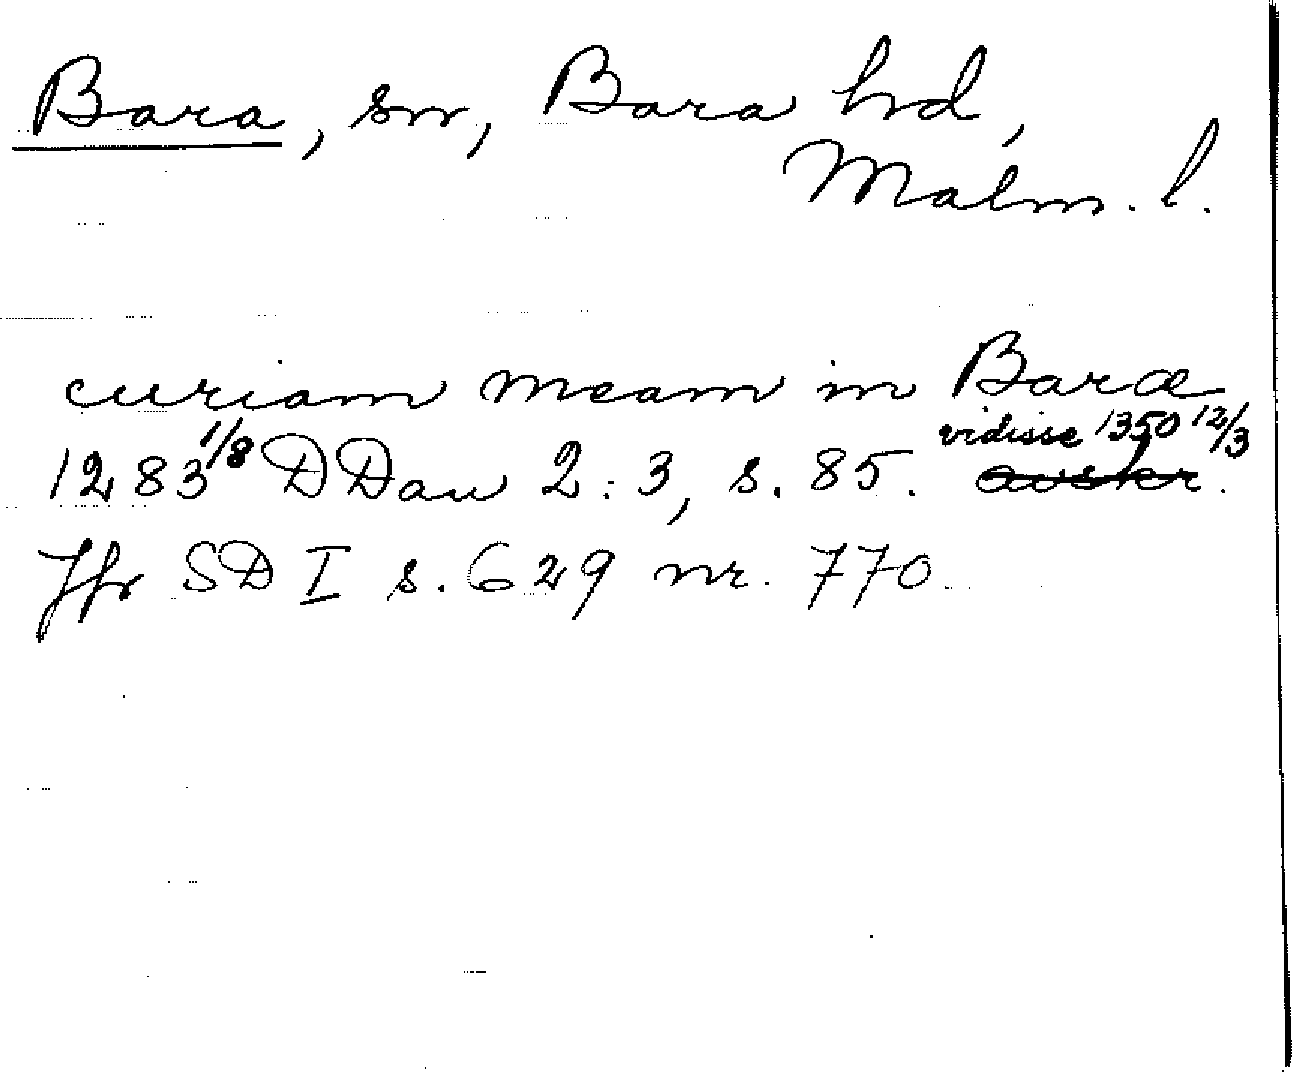 Bara, sn, Bara hd,
Malm. l.
curiam meam in Baræ
1283 1/8 DDan 2:3, s. 85. vidisse 1350 12/3
avskr.
Jfr SD I s. 629 nr. 770